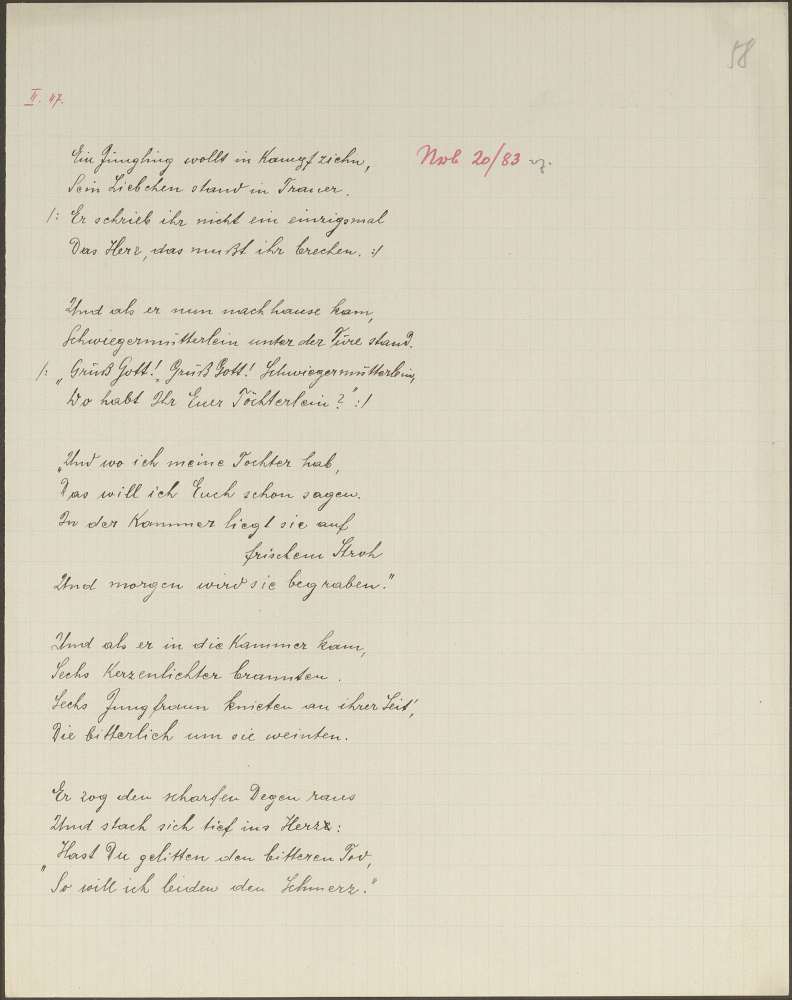 58
II. 47.
Ein Jüngling wollt in Kampf ziehn,
Sein Liebchen stand in Trauer.
/: Er schrieb ihr nicht ein einzigsmal
Das Herz, das mußt ihr brechen. :/
Und als er nun nach hause kam,
Schwiegermütterlein unter der Türe stand.
/: „Grüß Gott!, Grüß Gott! Schwiegermütterlein,
Wo habt Ihr Euer Töchterlein?" :/
„Und wo ich meine Tochter hab,
Das will ich Euch schon sagen.
In der Kammer liegt sie auf
frischem Stroh
Und morgen wird sie begraben."
Und als er in die Kammer kam,
Sechs Kerzenlichter brannten.
Sechs Jungfraun knieten an ihrer Seit',
Die bitterlich um sie weinten.
Er zog den scharfen Degen raus
Und stach sich tief ins Herz:
„Hast Du gelitten den bitteren Tod,
So will ich leiden den Schmerz."
20/83